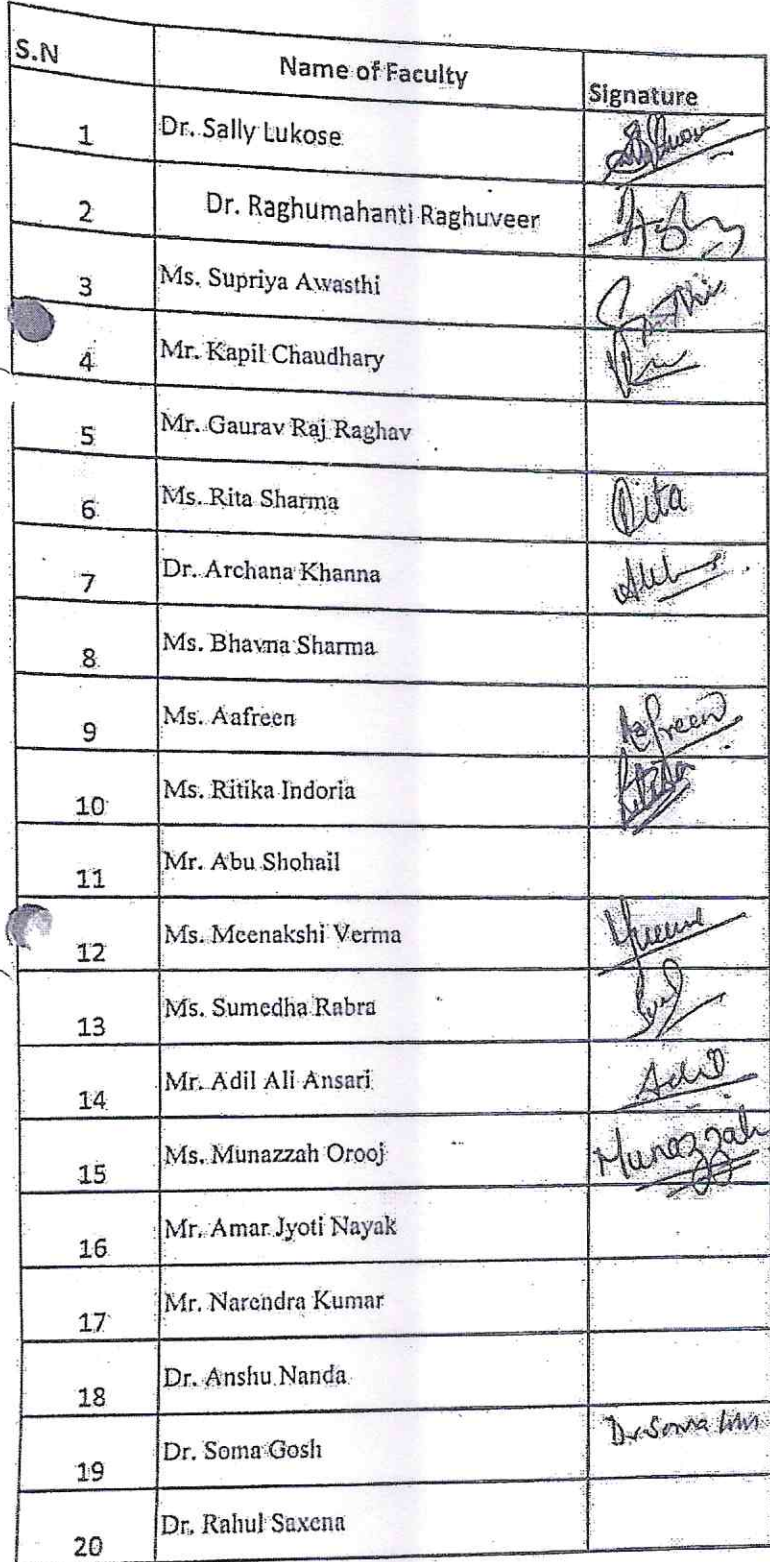 S.N Name of Faculty Signature
1 Dr. Sally Lukose
2 Dr. Raghumahanti Raghuveer
3 Ms. Supriya Awasthi
4 Mr. Kapil Chaudhary
5 Mr. Gaurav Raj Raghav
6 Ms. Rita Sharma Rita
7 Dr. Archana Khanna
8 Ms. Bhavna Sharma
9 Ms. Aafreen Aafreen
10 Ms. Ritika Indoria Ritika
11 Mr. Abu Shohail
12 Ms. Meenakshi Verma
13 Ms. Sumedha Rabra
14 Mr. Adil Ali Ansari Adil
15 Ms. Munazzah Orooj Munazzah
16 Mr. Amar Jyoti Nayak
17 Mr. Narendra Kumar
18 Dr. Anshu Nanda
19 Dr. Soma Gosh Dr Soma
20 Dr. Rahul Saxena